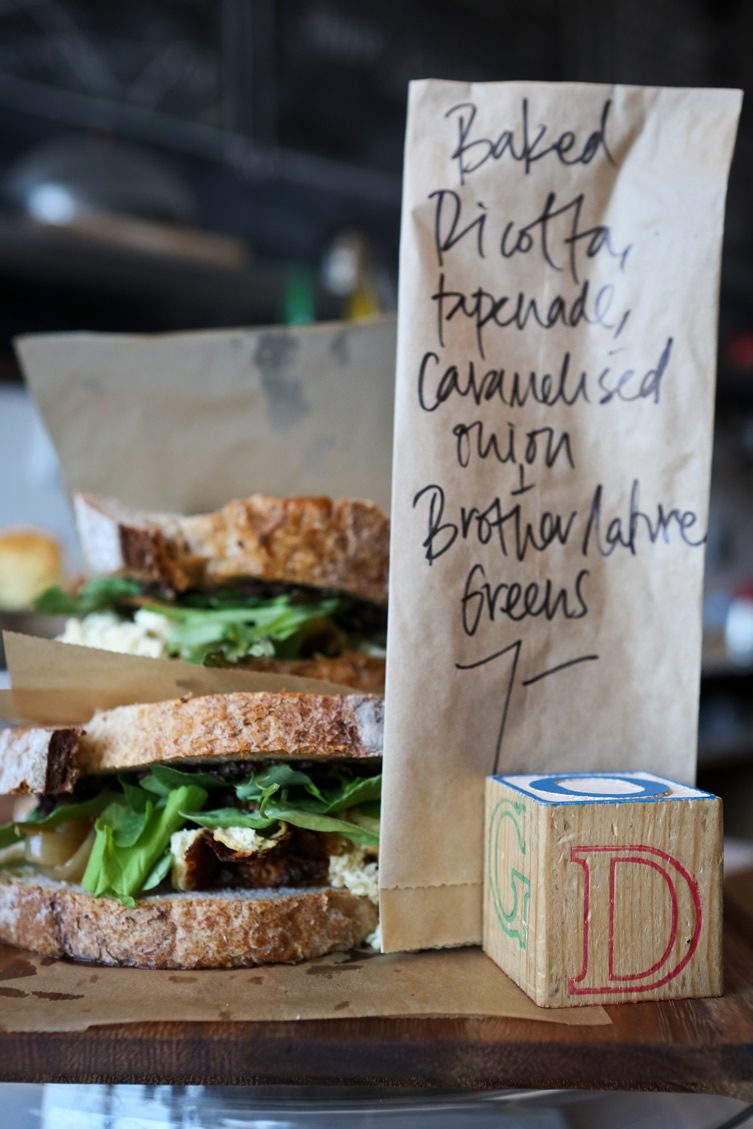 Baked
Ricotta,
tapenade,
Caramelised
onion
+
Brother Nature
Greens
7-
O
G
D